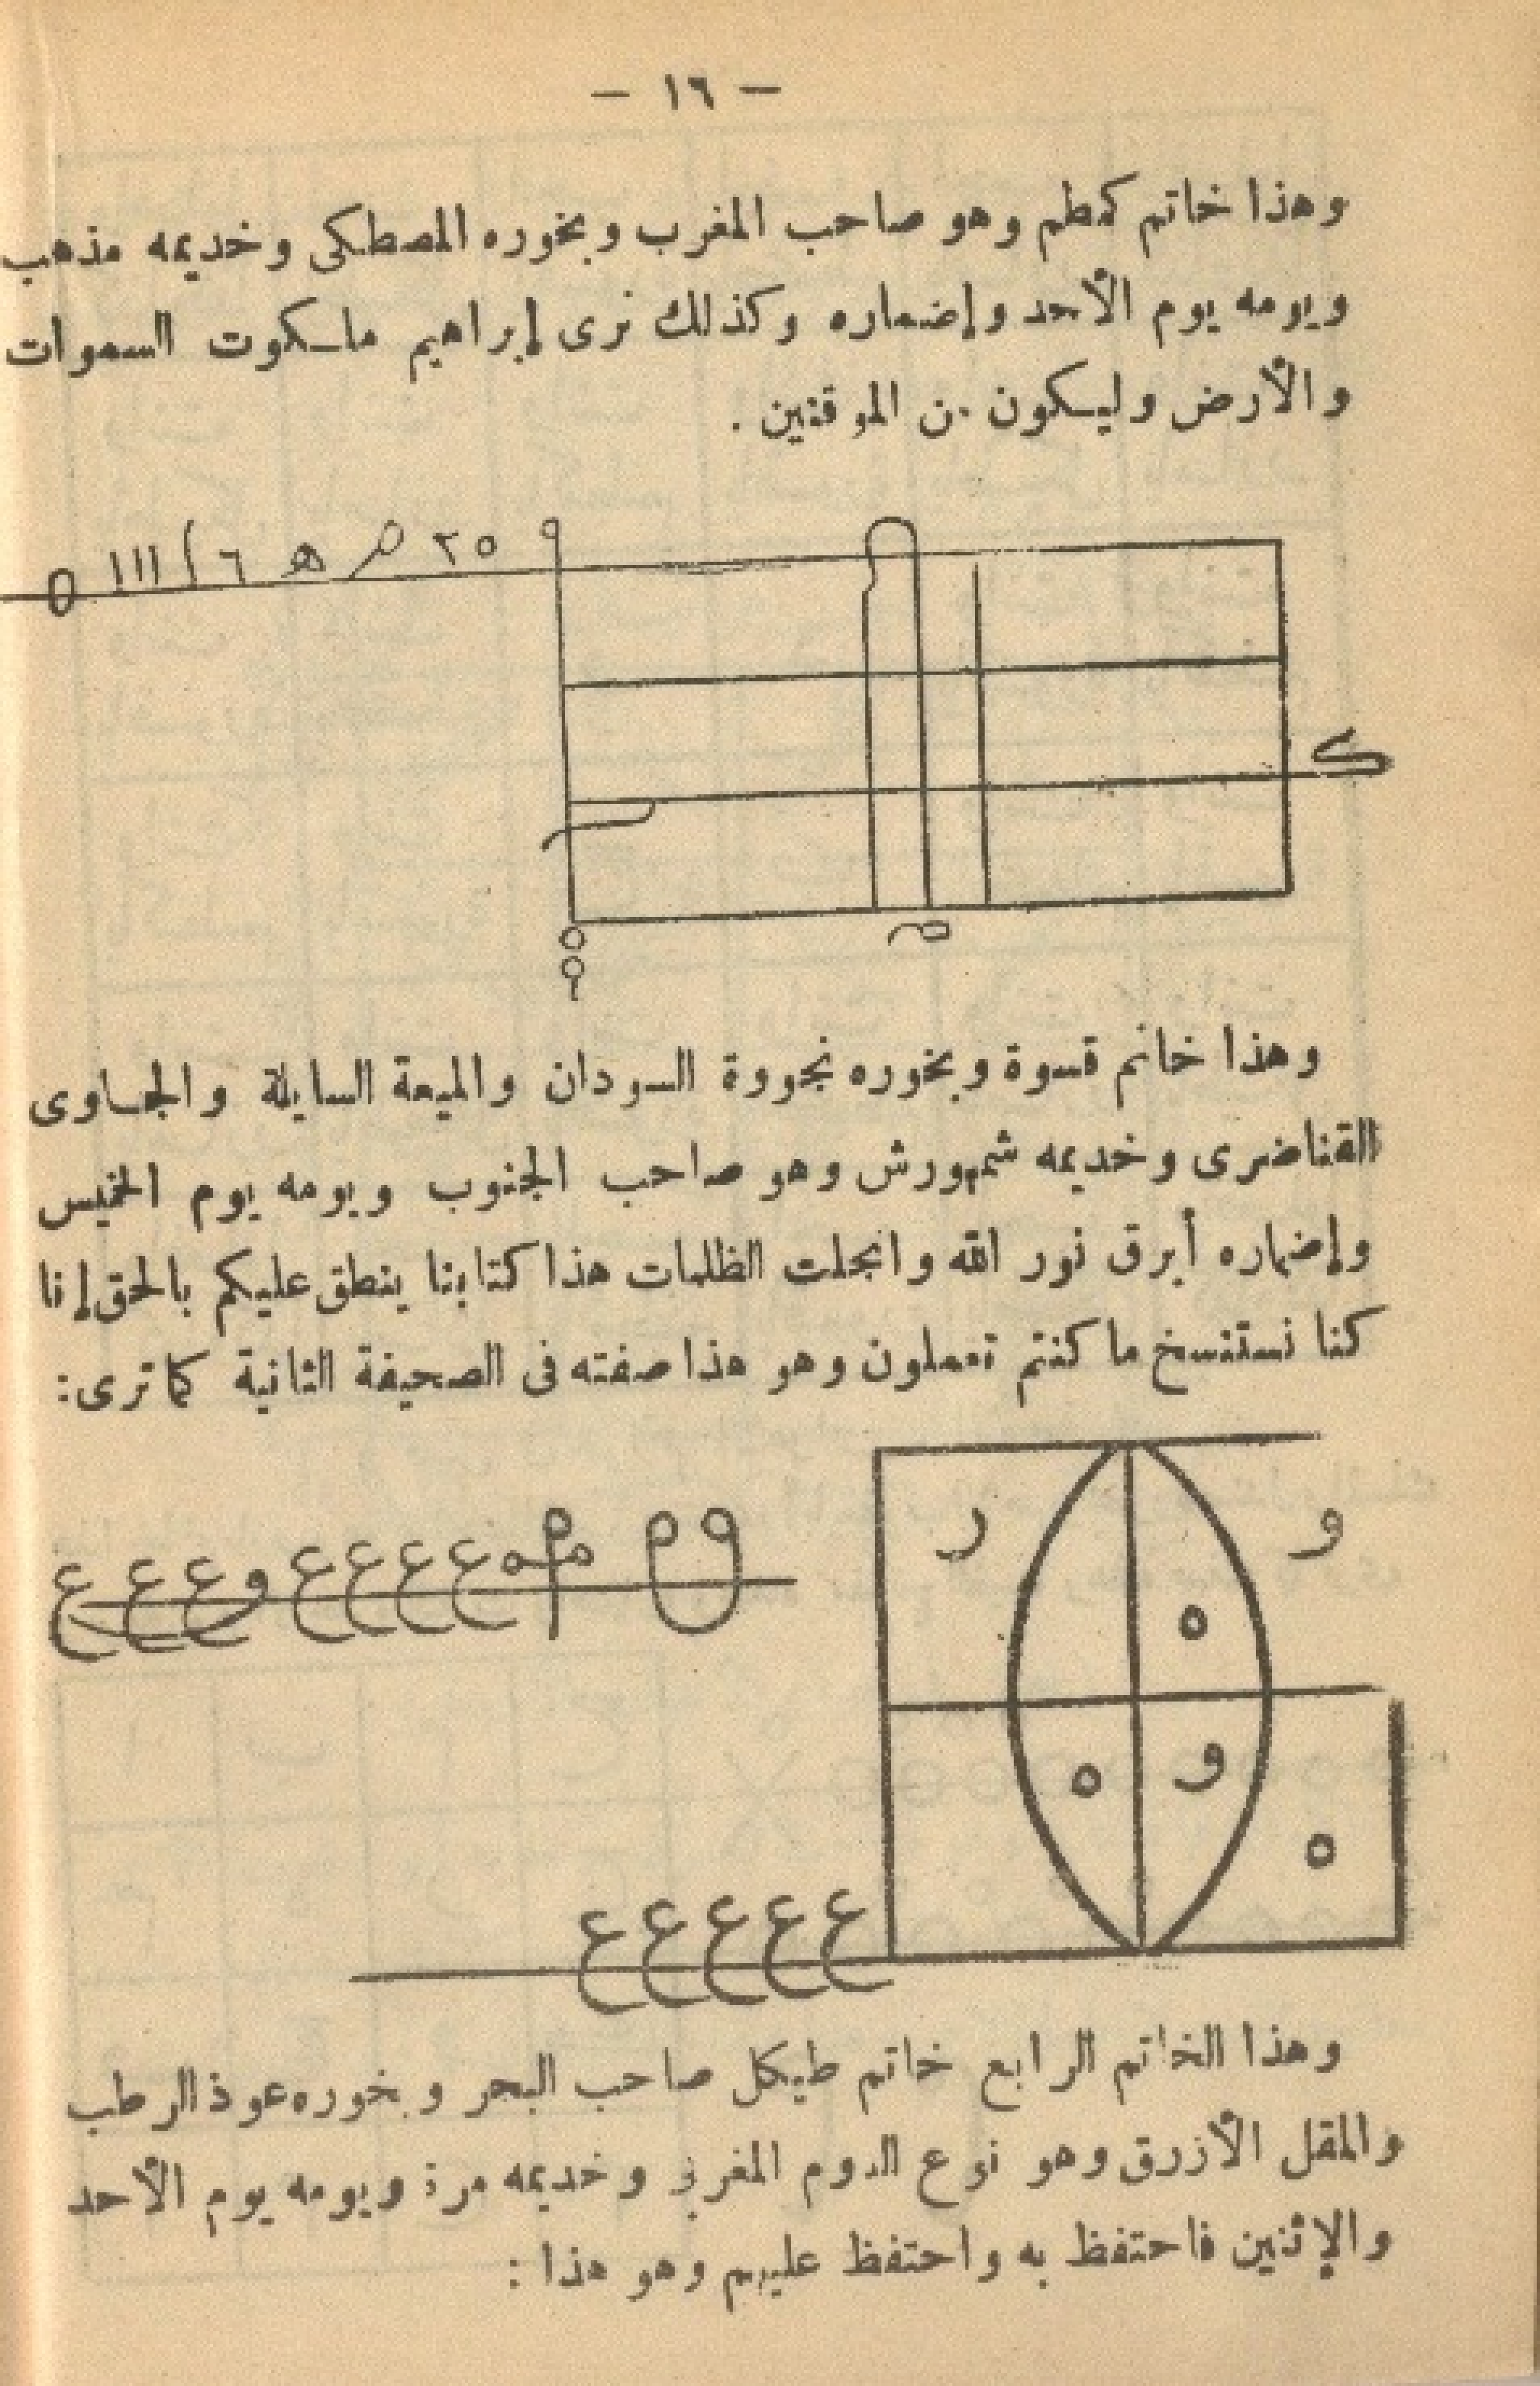 — ١٦ —
وهذا خاتم كمطم وهو صاحب المغرب وبخوره المصطكى وخديمه مذهب
ويومه يوم الأحد وإضماره وكذلك نرى إبراهيم ملكوت السموات
والأرض وليكون من الموقنين .
٢٥ م ھ ٦ ا ااا ه
ك
وهذا خاتم قسوة وبخوره نجووة السودان والميعة السايلة والجاوى
القناضرى وخديمه شمهورش وهو صاحب الجنوب ويومه يوم الخميس
وإضماره أبرق نور الله وانجلت الظلمات هذا كتابنا ينطق عليكم بالحق إنا
كنا نستنسخ ما كنتم تعملون وهو هذا صفته فى الصحيفة الثانية كما ترى :
ر و
ه
ع ع ع ع و ع ع ع
ه و
ه
ع ع ع ع ع
وهذا الخاتم الرابع خاتم طيكل صاحب البحر وبخوره عوذ الرطب
والمقل الأزرق وهو نوع الدوم المغربى وخديمه مرة ويومه يوم الأحد
والإثنين فاحتفظ به واحتفظ عليهم وهو هذا :